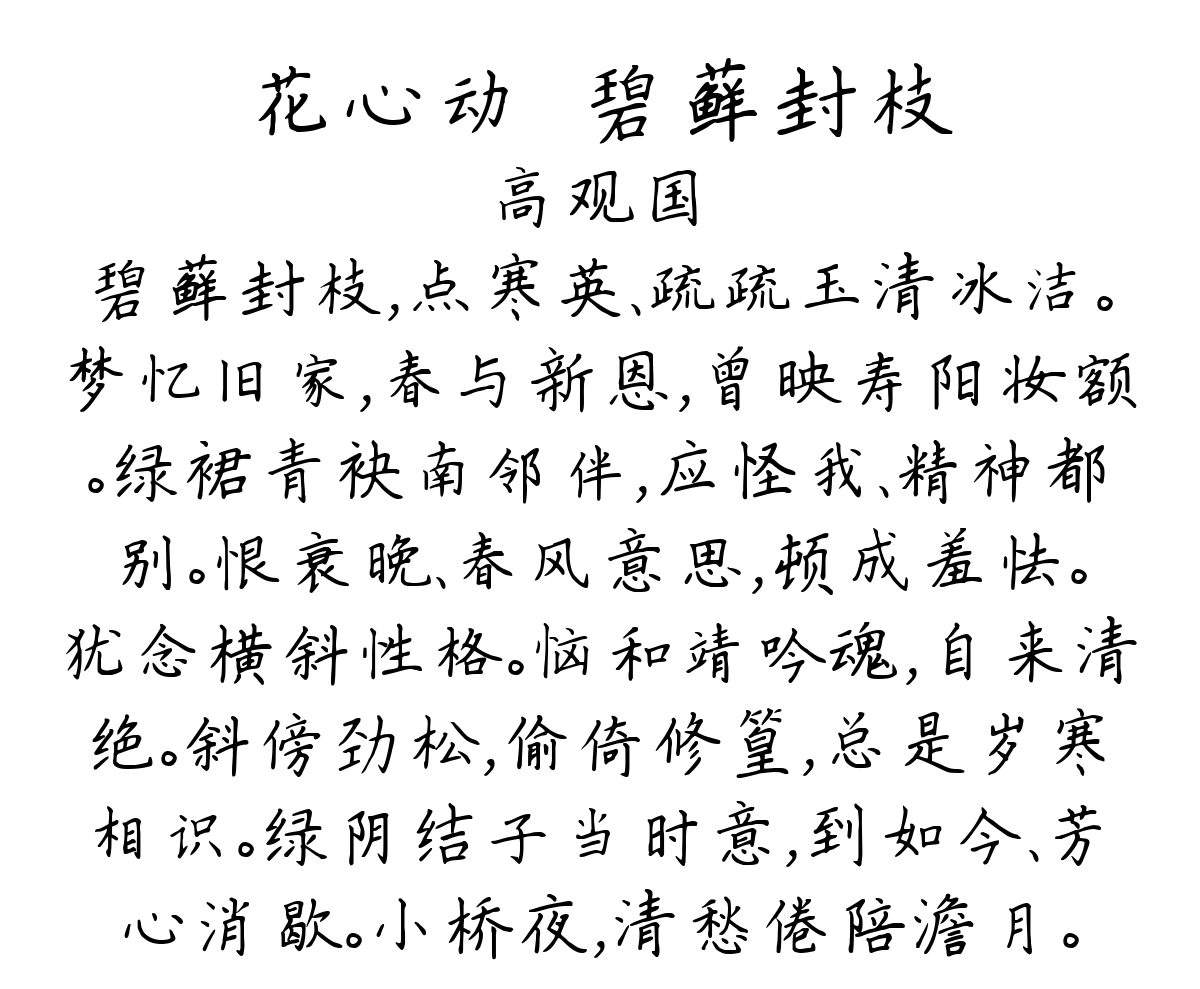 花心动 碧藓封枝
高观国
碧藓封枝,点寒英、疏疏玉清冰洁。
梦忆旧家,春与新恩,曾映寿阳妆额
。绿裙青袂南邻伴,应怪我、精神都
别。恨衰晚、春风意思,顿成羞怯。
犹念横斜性格。恼和靖吟魂,自来清
绝。斜傍劲松,偷倚修篁,总是岁寒
相识。绿阴结子当时意,到如今、芳
心消歇。小桥夜,清愁倦陪澹月。